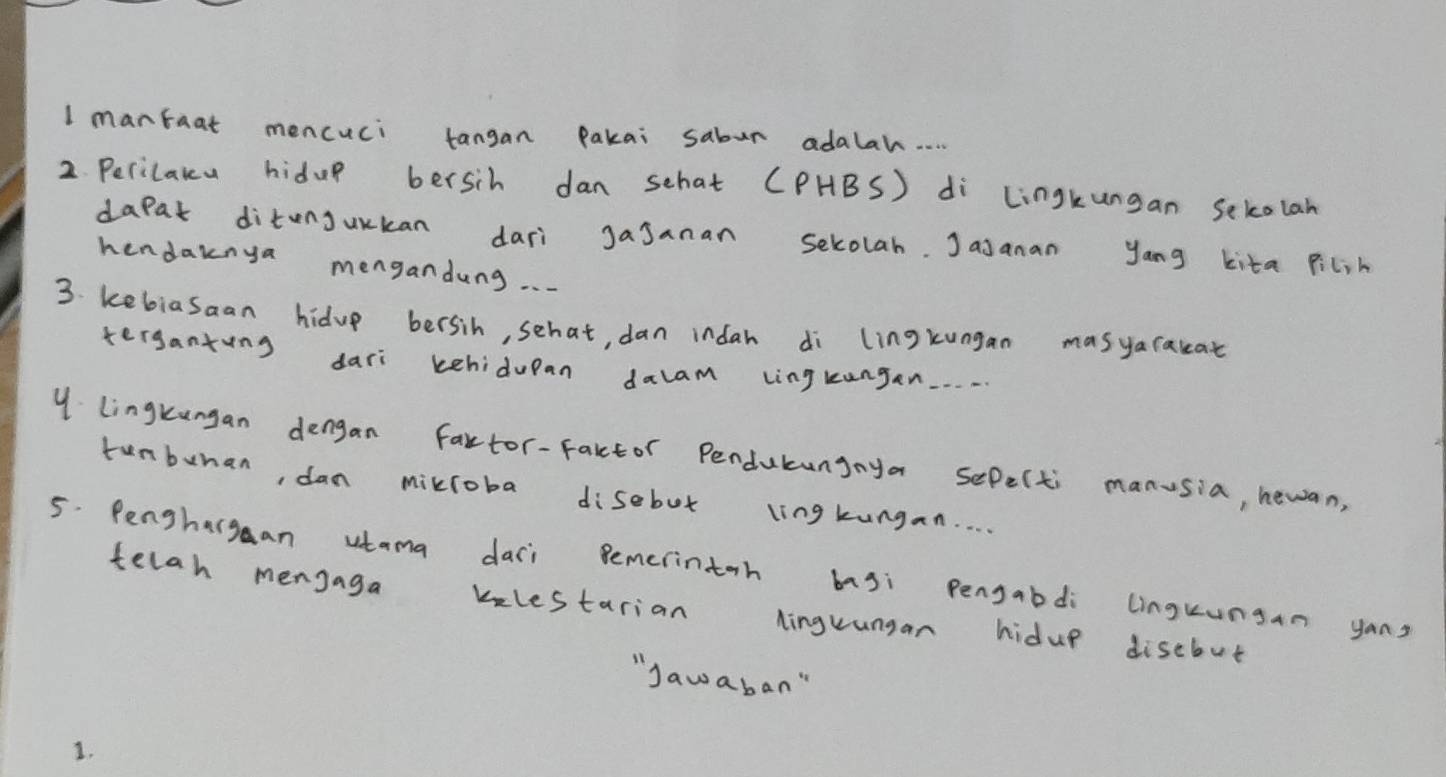 1 manfaat mencuci tangan pakai sabun adalah....
2. Perilaku hidup bersih dan sehat (PHBS) di lingkungan sekolah
dapat ditungukkan dari jajanan sekolah. Jajanan yang kita pilih
hendaknya mengandung...
3. kebiasaan hidup bersih, sehat, dan indah di lingkungan masyarakat
tergantung dari kehidupan dalam lingkungan.....
4. lingkungan dengan faktor-faktor pendukungnya seperti manusia, hewan,
tumbuhan, dan mikroba disebut lingkungan....
5. Penghargaan utama dari pemerintah bagi pengabdi lingkungan yang
telah menjaga kelestarian lingkungan hidup disebut
"Jawaban"
1.